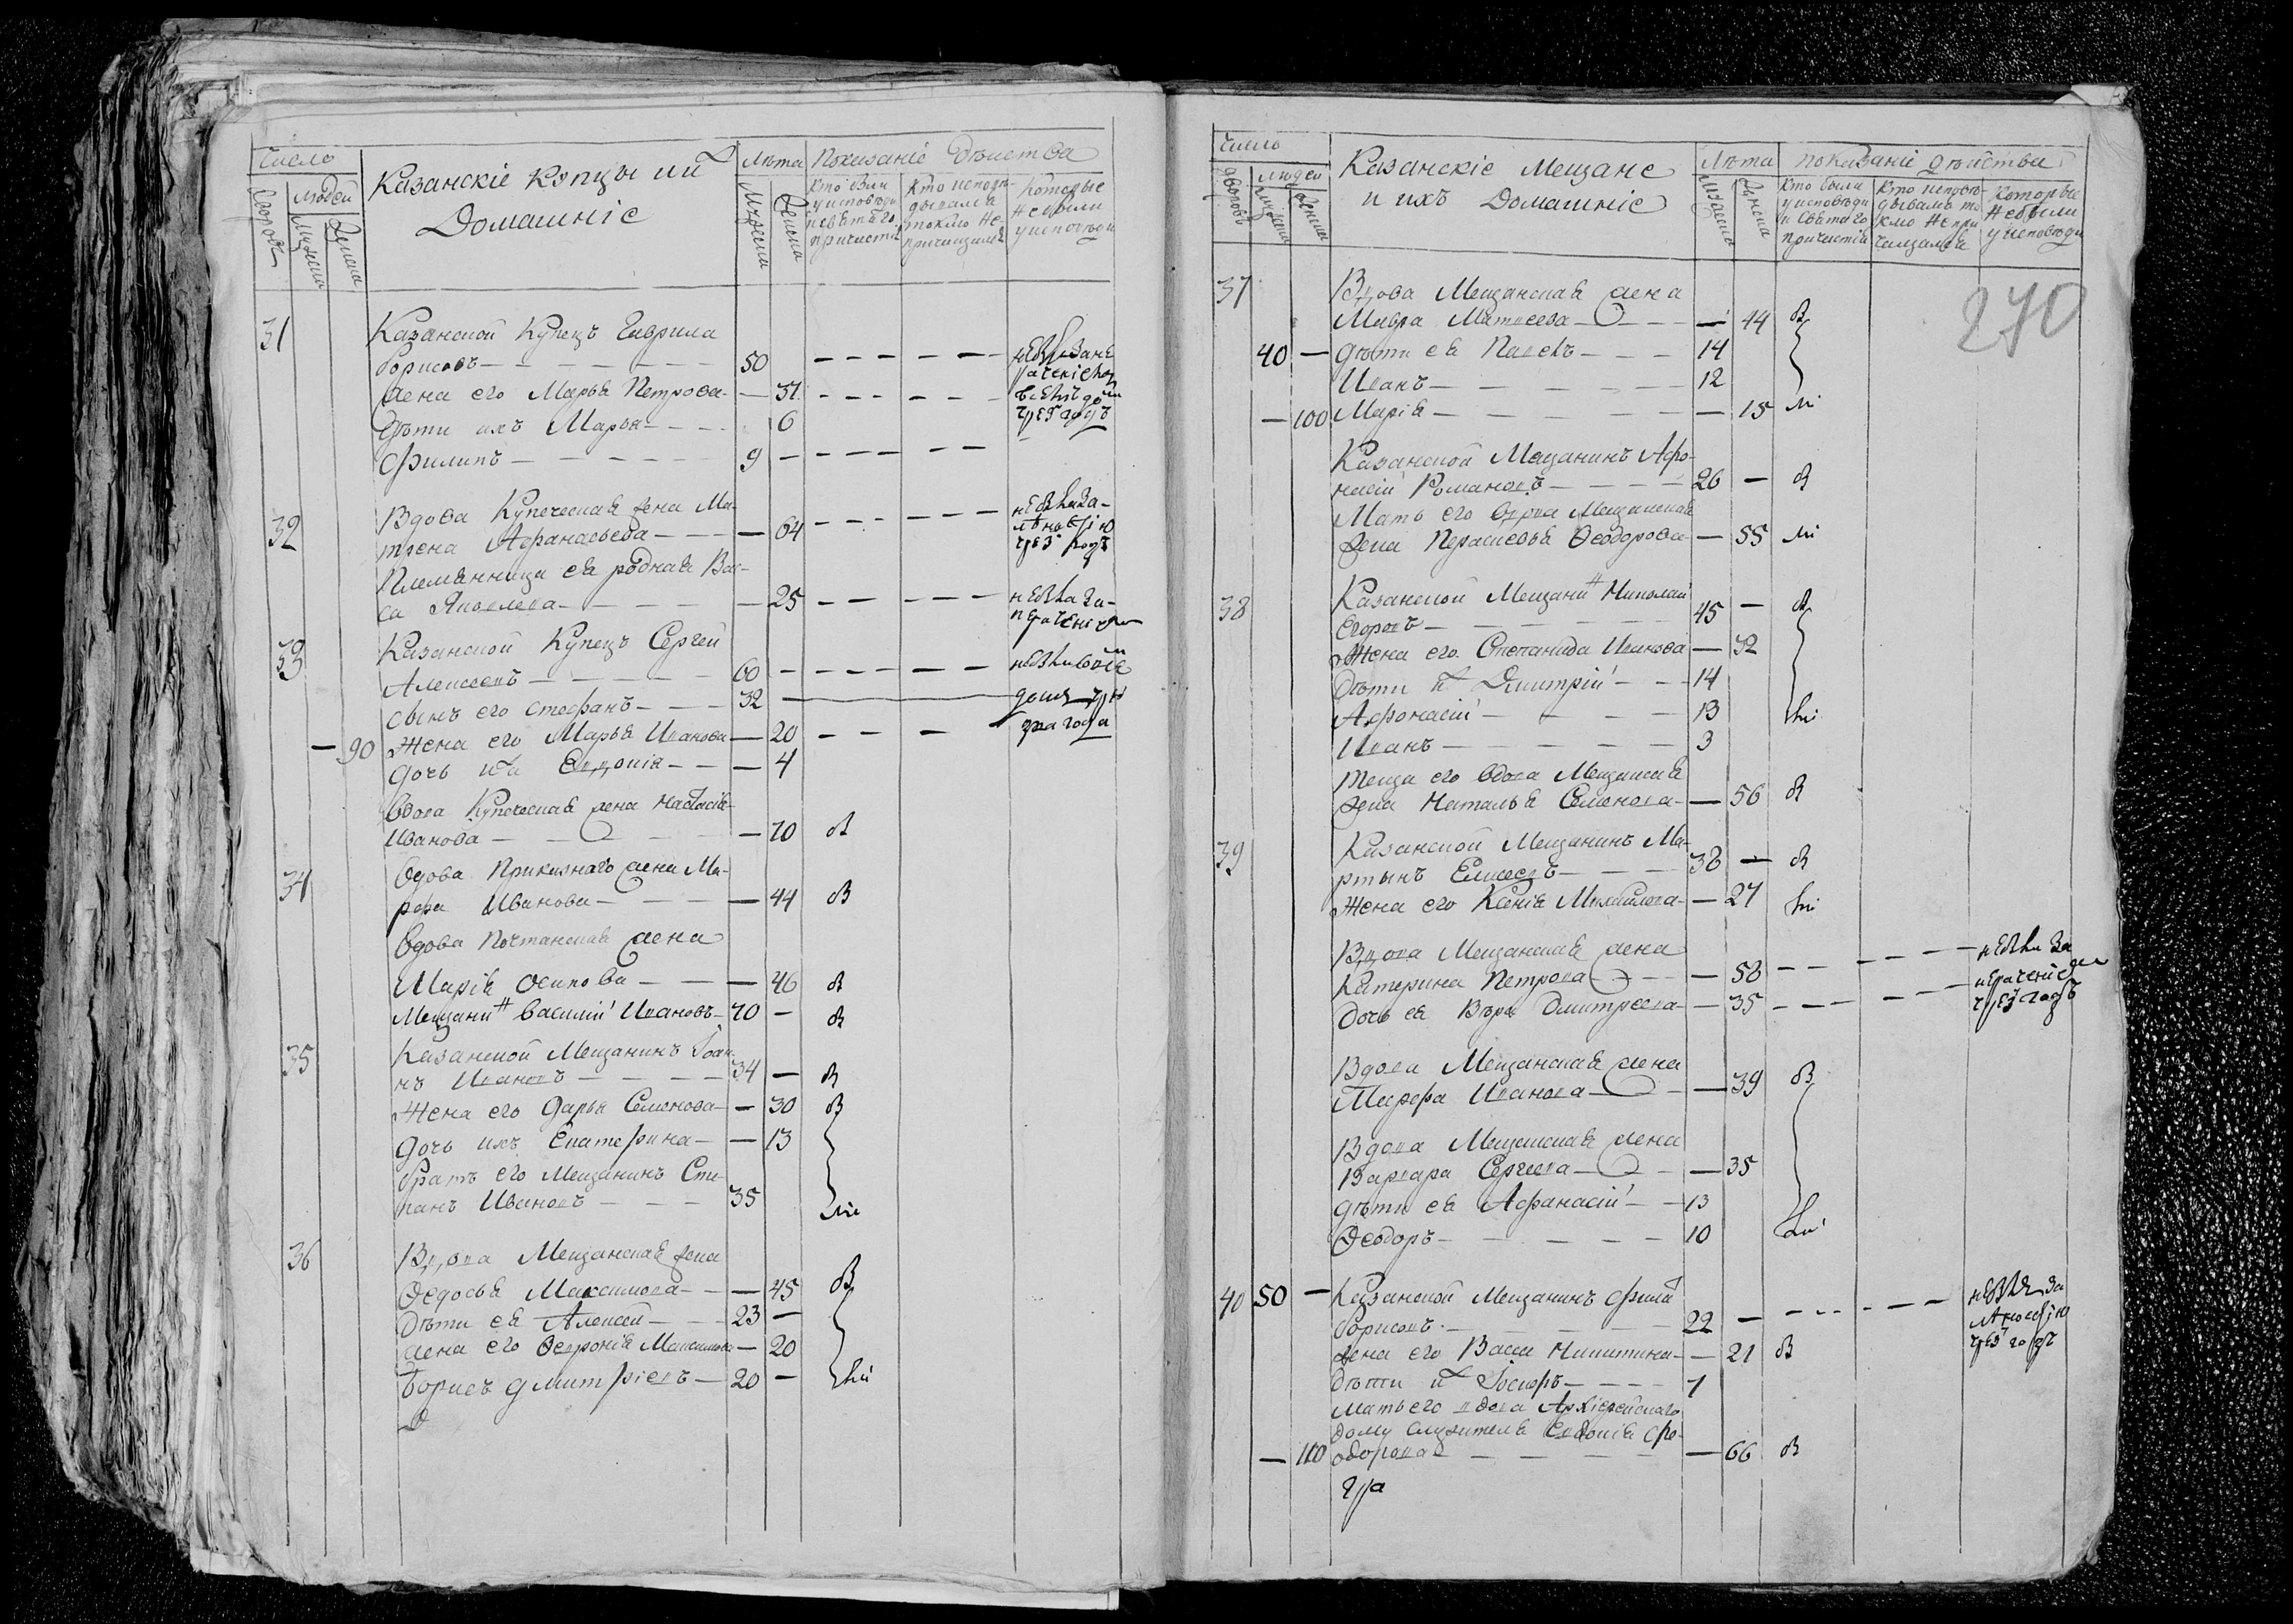 Число
Казанскіе Купцы и их
Домашніе
Лѣта
Показаніе дѣиства
Дворовъ
Людей
Мужеска
Женска
Мужеска
Женска
Кто были
у исповѣди
и святаго
причастія
Кто исповѣ-
дывался
токмо не
причащался
Которые
не были
у исповѣди
31
Казанской Купецъ Гаврила
Борисовъ 50
жена его Марья Петрова 37
Дѣти ихъ Марья 6
Филипъ 9
чрез годъ
32
Вдова Купеческая жена Ма-
трена Афанасьева 64
чрез годъ
Племянница ея родная Вас-
са Яковлева 25
33
Казанской Купецъ Сергей
Алексеевъ 60
сынъ его Стефанъ 32
90 Жена его Марья Иванова 20
дочь их Евдокія 4
три года
Вдова Купеческая жена Настасія
Иванова 70 В
34
Вдова Приказнаго жена Ма-
рфа Иванова 44 В
Вдова Почтанская жена
Марія Осипова 46 В
Мещани Василий Ивановъ 70 В
35
Казанской Мещанинъ Іоан-
нъ Ивановъ 34 В
Жена его Дарья Семенова 30 В
дочь ихъ Екатерина 13
братъ его Мещанинъ Сте-
панъ Ивановъ 35
36
Вдова Мещанская жена
Федосья Максимова 45 В
Дѣти ея Алексей 23
жена его Февронія Максимова 20
Борисъ дмитріевъ 20
Число
Казанскіе Мещане
и ихъ Домашніе
Лѣта
показаніе дѣиства
Дворовъ
людей
Мужеска
Женска
Мужеска
Женска
Кто были
у исповѣди
и Святаго
причастія
Кто исповѣ-
дывался то-
кмо не при-
чащался
Которые
не были
у исповѣди
270
37
Вдова Мещанская жена
Мавра Матвеева 44 В
40 дѣти ея Павелъ 14
Иванъ 12
100 Марія 15
Казанской Мещанинъ Афо-
насій Романовъ 26 В
Мать его вдова Мещанская
жена Парасковья Феодорова 55
38
Казанской Мещани Николай
Егоровъ 45 В
Жена его Степанида Иванова 32
Дѣти их Дмитрій 14
Афонасій 13
Иванъ 3
Теща его вдова Мещанская
жена Наталья Семенова 56 В
39
Казанской Мещанинъ Ма-
ртынъ Елисеевъ 38 В
Жена его Ксенія Михайлова 27
Вдова Мещанская жена
Катерина Петрова 58
Дочь ея Вѣра Дмитреева 35
чрез годъ
Вдова Мещанская жена
Марфа Иванова 39 В
Вдова Мещанская жена
Варвара Сергеева 35
дѣти ея Афанасій 13
Феодоръ 10
40 50 Казанской Мещанинъ Фили
Борисовъ 22
жена его Васса Никитина 21 В
чрез годъ
Дѣти их Іосифъ 1
мать его вдова Архіерейскаго
дому служителя Евдокія Фе-
одорова 66 В
110